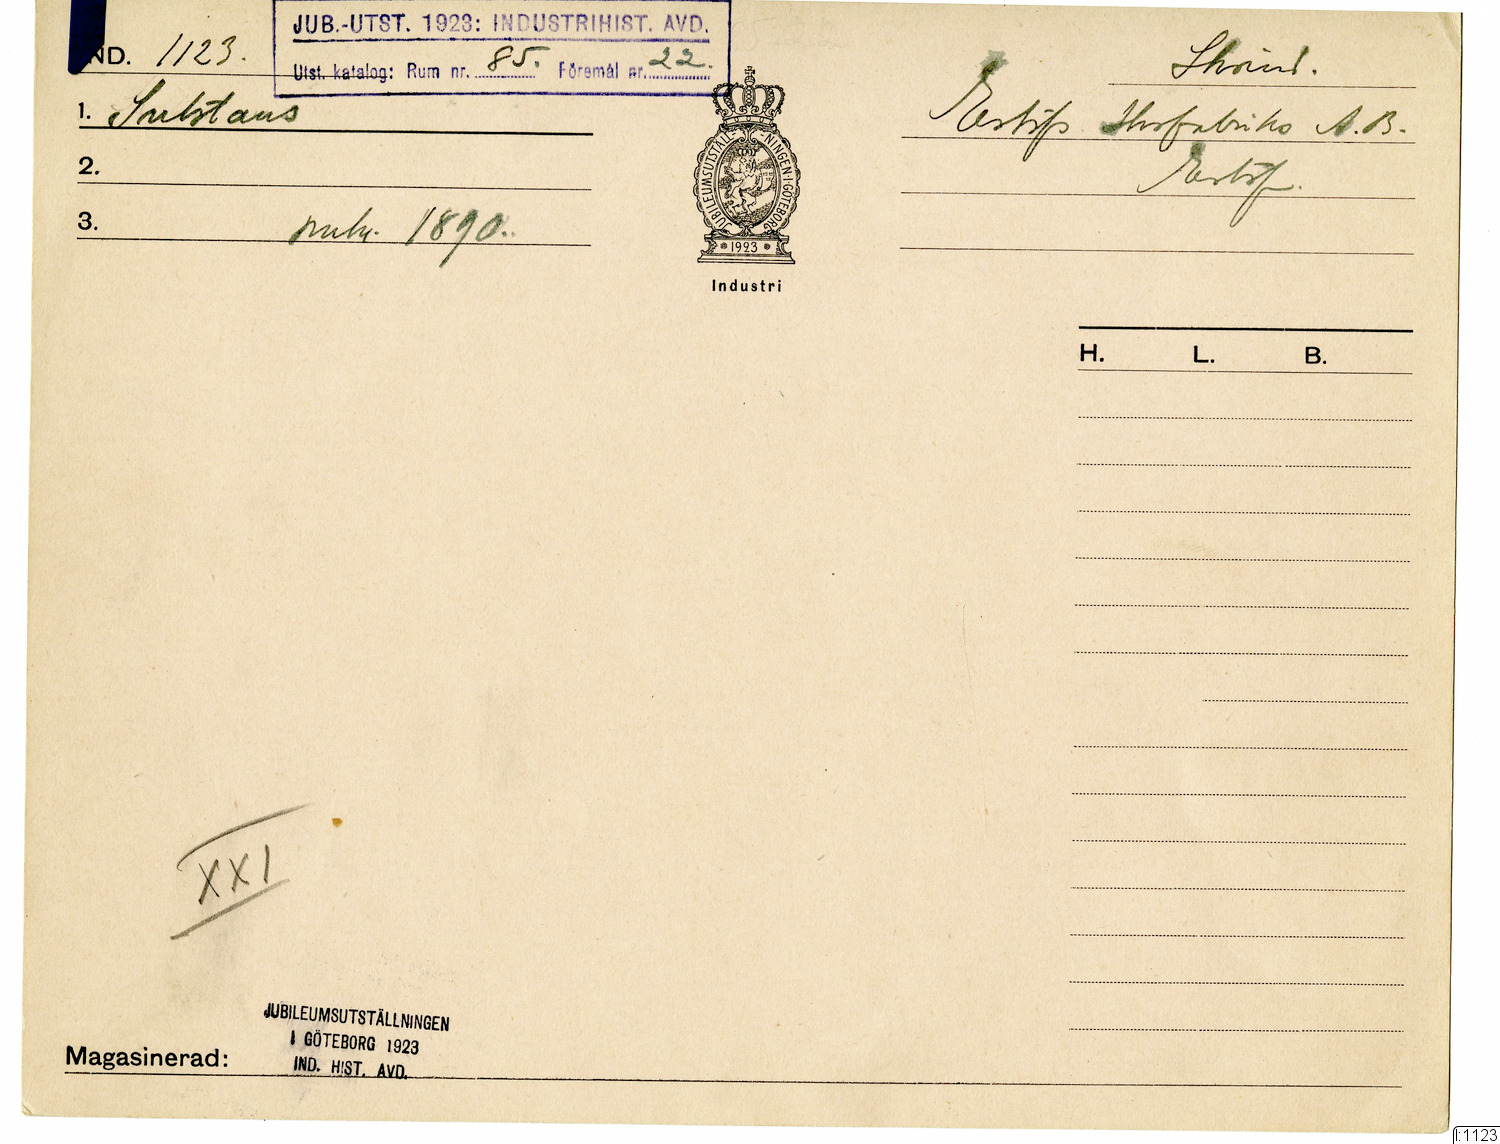 JUB.-UTST. 1923: INDUSTRIHIST. AVD.
Utst. katalog: Rum nr. 85. Föremål nr. 22.
IND. 1123.
1. Substans
2.
3. 1890.
JUBILEUMSUTSTÄLLNINGEN · I · GÖTEBORG
1923
Industri
A.B.
H. L. B.
XXI
JUBILEUMSUTSTÄLLNINGEN
I GÖTEBORG 1923
IND. HIST. AVD.
Magasinerad:
I:1123